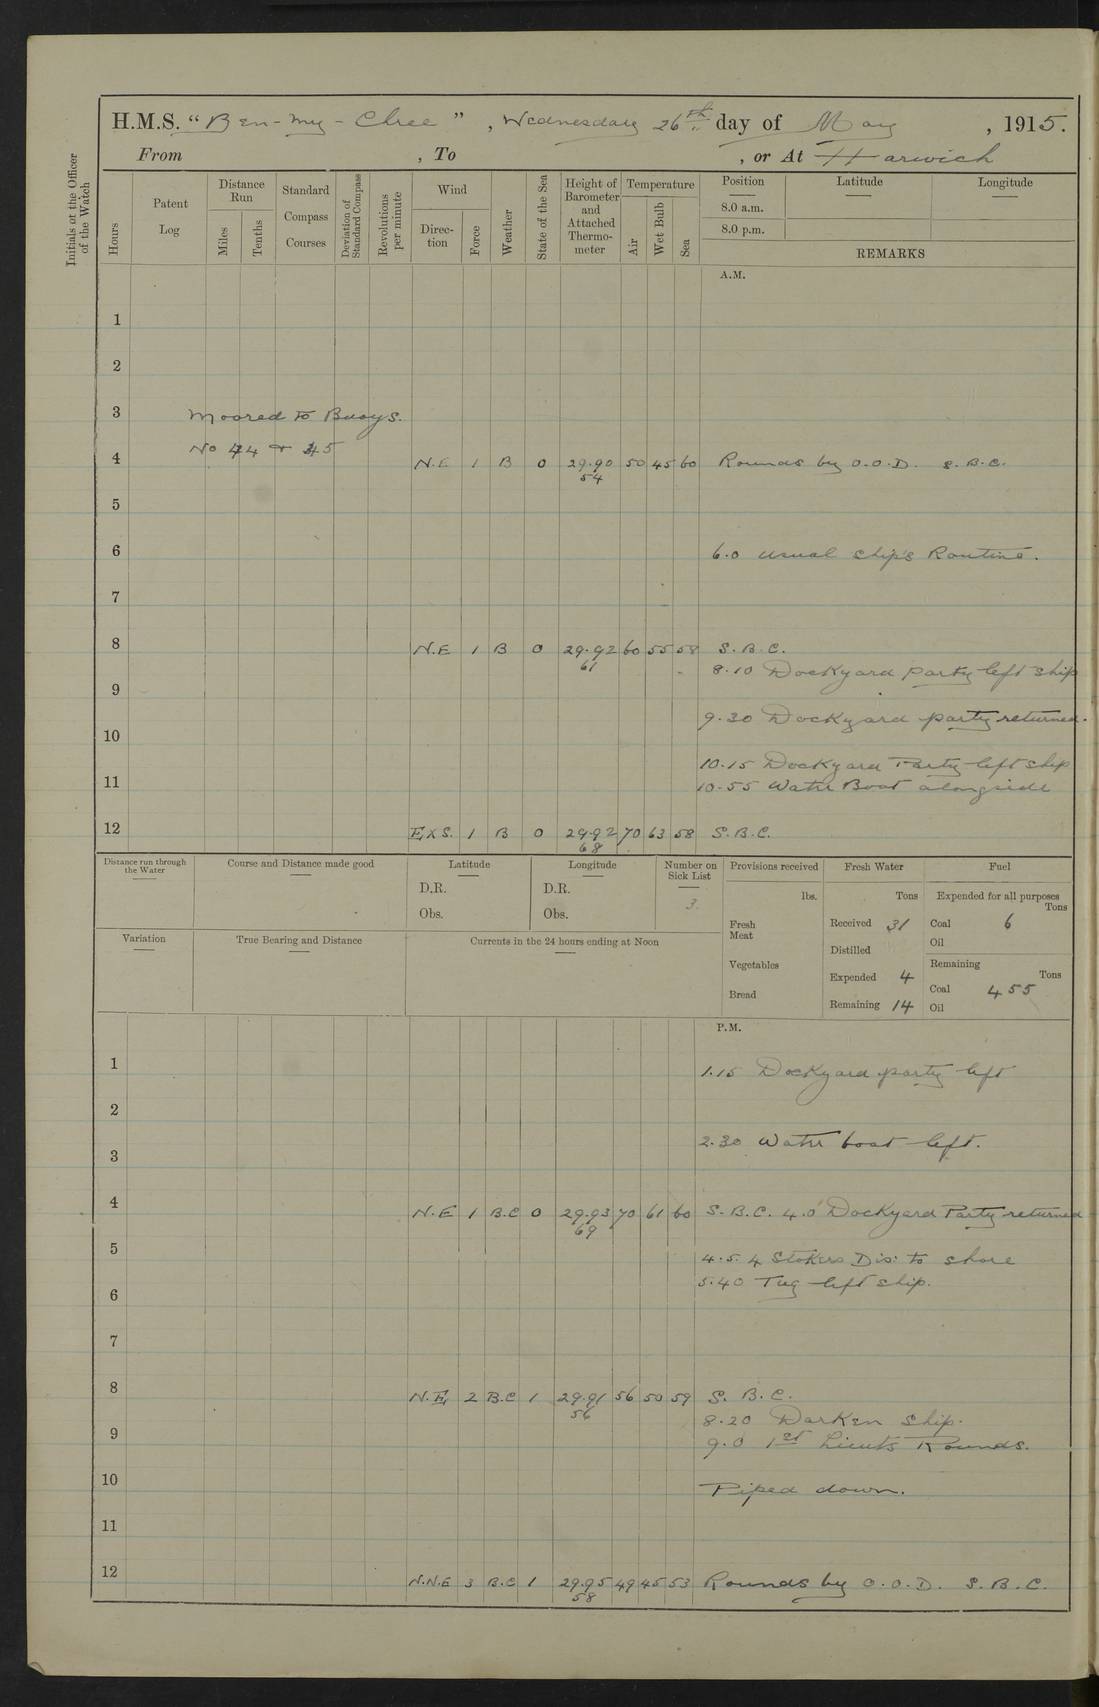 H.M.S. "Ben-my-Chree", Wednesday 26th day of May, 1915.
From , To , or At Harwich
Initials of the Officer of the Watch
Hours
Patent Log
Distance Run
Miles
Tenths
Standard Compass Courses
Deviation of Standard Compass
Revolutions per minute
Wind
Direc-tion
Force
Weather
State of the Sea
Height of Barometer and Attached Thermo-meter
Temperature
Air
Wet Bulb
Sea
Position
8.0 a.m.
8.0 p.m.
Latitude
Longitude
REMARKS
A.M.
1
2
3 Moored to Buoys.
No 44 & 45
4 N.E 1 B 0 29.90 50 45 60 Rounds by O.O.D. S.B.C.
54
5
6 6.0 Usual Ship's Routine.
7
8 N.E 1 B 0 29.92 60 55 58 S.B.C.
61
8.10 Dockyard party left ship
9
9.30 Dockyard party returned.
10
10.15 Dockyard Party left ship
11 10.55 Water Boat alongside
12 ExS. 1 B 0 29.92 70 63 58 S.B.C.
68
Distance run through the Water
Course and Distance made good
Latitude
D.R.
Obs.
Longitude
D.R.
Obs.
Number on Sick List
3
Provisions received
lbs.
Fresh Meat
Vegetables
Bread
Fresh Water
Tons
Received 31
Distilled
Expended 4
Remaining 14
Fuel
Expended for all purposes
Tons
Coal 6
Oil
Remaining
Tons
Coal 455
Oil
Variation
True Bearing and Distance
Currents in the 24 hours ending at Noon
P.M.
1 1.15 Dockyard party left
2
2.30 Water boat left.
3
4 N.E 1 B.C 0 29.93 70 61 60 S.B.C. 4.0 Dockyard Party returned
69
5 4.5. 4 Stokers Dis: to shore
5.40 Tug left ship.
6
7
8 N.E, 2 B.C 1 29.91 56 50 59 S.B.C.
56
8.20 Darken Ship.
9 9.0 1st Lieuts Rounds.
10 Piped down.
11
12 N.N.E 3 B.C 1 29.95 49 45 53 Rounds by O.O.D. S.B.C.
58